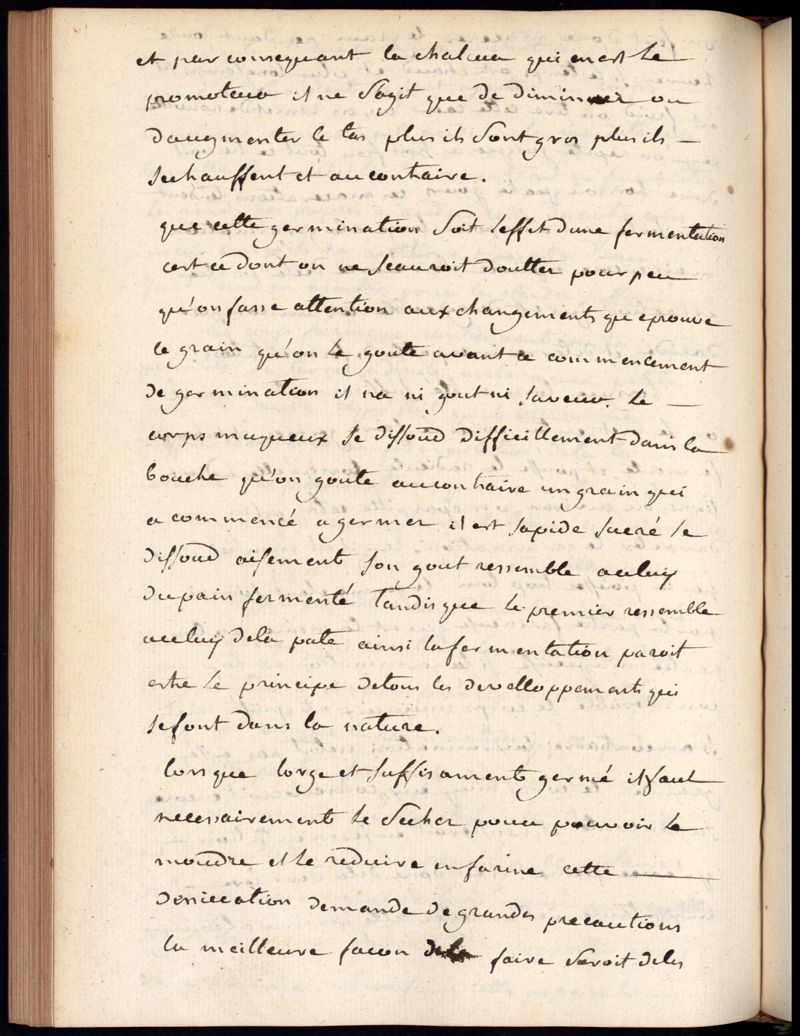 et par consequant la chaleur qui en est le
promoteur il ne Sagit que de diminuer ou
daugmenter le tas plus ils Sont gros plus ils —
sechauffent et au contraire.
que cette germination Soit leffet dune fermentation
cest ce dont on ne scauroit doutter pour peu
qu'on fasse attention aux changements que eprouve
le grain qu'on le goute avant ce commencement
de germination il na ni gout ni saveur. le —
corps muqueux se dissoud difficillement dans la
bouche qu'on goute au contraire un grain qui
a commencé a germer il est sapide sucré se
dissoud aisement son gout ressemble a celuy
du pain fermenté tandis que le premier ressemble
a celuy de la pate ainsi la fermentation paroit
estre le principe de tous les developpements qui
se font dans la nature.
lorsque lorge et suffisament germé il faut
necessairement le Secher pour pouvoir le
moudre et le reduire en farine cette —
dessiccation demande de grandes precautions
la meilleure facon de le faire Seroit de les